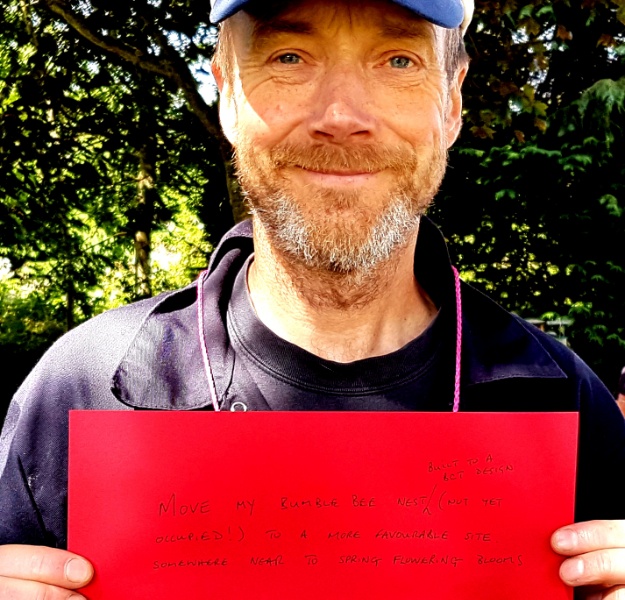 BUILT TO A
BCT DESIGN
MOVE MY BUMBLE BEE NEST/(NOT YET
OCCUPIED!) TO A MORE FAVOURABLE SITE
SOMEWHERE NEAR TO SPRING FLOWERING BLOOMS